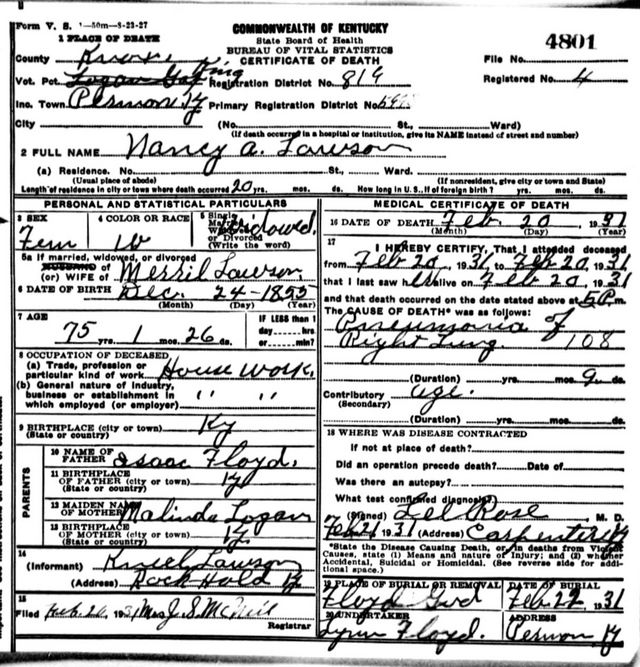 Form V. S. 1—50m—8-23-27
COMMONWEALTH OF KENTUCKY
State Board of Health
BUREAU OF VITAL STATISTICS
CERTIFICATE OF DEATH
1 PLACE OF DEATH
County Knox
Vot. Pct.
Inc. Town Permon Ky
City
File No. 4801
Registered No. 4
Registration District No. 819
Primary Registration District No.
(No. St., Ward)
(If death occurred in a hospital or institution, give its NAME instead of street and number)
2 FULL NAME Nancy A. Lawson
(a) Residence. No. St., Ward.
(Usual place of abode) (If nonresident, give city or town and State)
Length of residence in city or town where death occurred 20 yrs. mos. ds. How long in U. S., If of foreign birth? yrs. mos. ds.
PERSONAL AND STATISTICAL PARTICULARS
3 SEX Fem
4 COLOR OR RACE W
5 Single Married Widowed or Divorced (Write the word) Widowed.
5a If married, widowed, or divorced
HUSBAND of
(or) WIFE of Merril Lawson
6 DATE OF BIRTH Dec. 24-1855
(Month) (Day) (Year)
7 AGE
75 yrs. 1 mos. 26 ds.
IF LESS than 1 day------hrs. or------min?
8 OCCUPATION OF DECEASED
(a) Trade, profession or particular kind of work House work.
(b) General nature of industry, business or establishment in which employed (or employer) " "
9 BIRTHPLACE (city or town) Ky
(State or country)
PARENTS
10 NAME OF FATHER Isaac Floyd.
11 BIRTHPLACE OF FATHER (city or town) Ky
(State or country)
12 MAIDEN NAME OF MOTHER Malinda Logan
13 BIRTHPLACE OF MOTHER (city or town) Ky
(State or country)
14
(Informant) Lawson
(Address) Rock Hold Ky
15
Filed Feb. 26, 1931 Mrs J. S. McNeil
Registrar
MEDICAL CERTIFICATE OF DEATH
16 DATE OF DEATH Feb. 20, 1931
(Month) (Day) (Year)
17
I HEREBY CERTIFY, That I attended deceased
from Feb 20, 1931 to Feb 20, 1931
that I last saw h alive on Feb 20, 1931
and that death occurred on the date stated above at 5 P. m.
The CAUSE OF DEATH* was as follows:
Pneumonia of
Right Lung. 108
(Duration) yrs. mos. 9 ds.
Contributory age.
(Secondary)
(Duration) yrs. mos. ds.
18 WHERE WAS DISEASE CONTRACTED
If not at place of death?
Did an operation precede death? Date of
Was there an autopsy?
What test confirmed diagnosis?
(Signed) Rose M. D.
Feb 21, 1931 (Address) Carpenter Ky
*State the Disease Causing Death, or in deaths from Violent
Causes, state (1) Means and nature of Injury; and (2) whether
Accidental, Suicidal or Homicidal. (See reverse side for additional space.)
19 PLACE OF BURIAL OR REMOVAL Floyd Gvd
DATE OF BURIAL Feb. 22, 1931
20 UNDERTAKER Lynn Floyd.
ADDRESS Permon, Ky